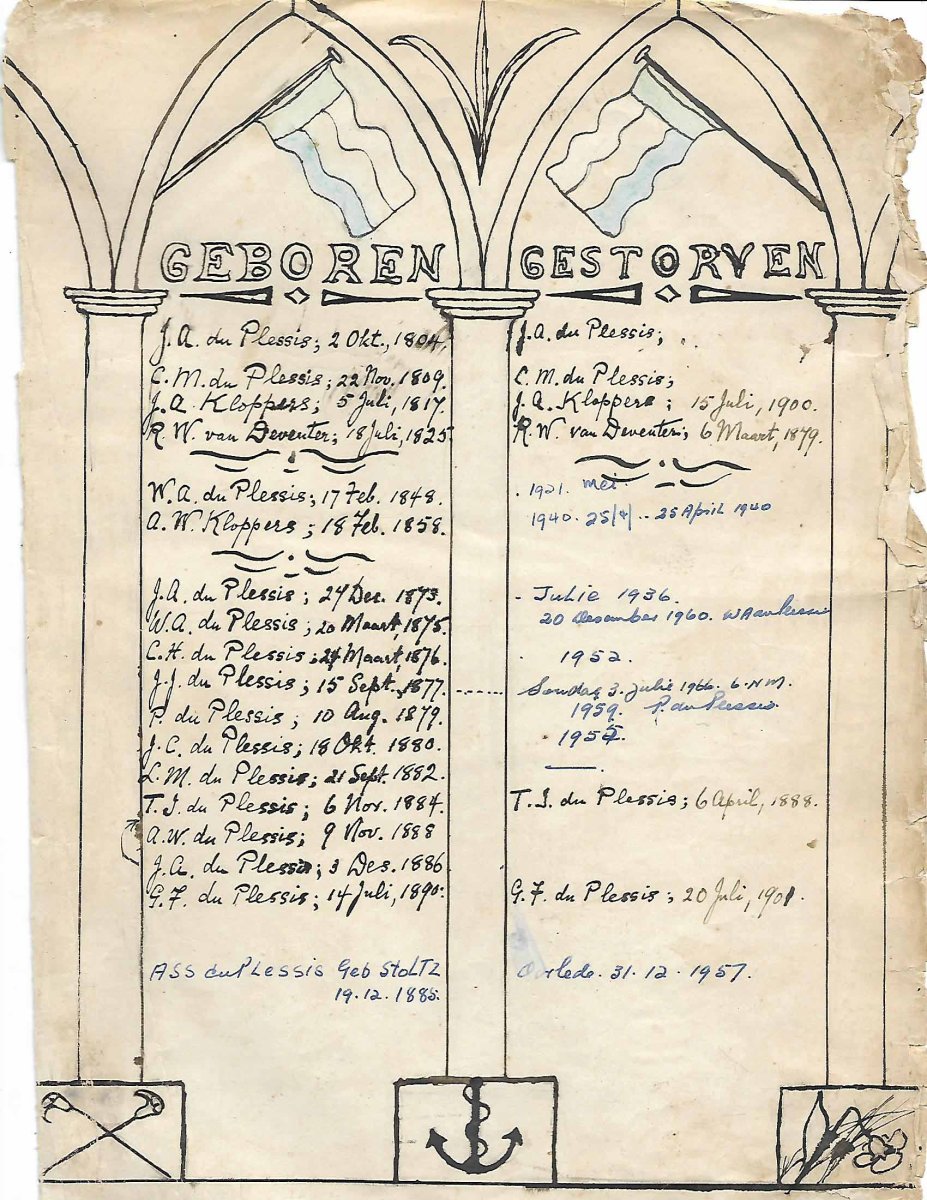 GEBOREN
J. A. du Plessis; 2 Okt., 1804.
C. M. du Plessis; 22 Nov. 1809.
J. A. Kloppers; 5 Juli, 1817.
R. W. van Deventer; 18 Juli, 1825.
W. A. du Plessis; 17 Feb. 1848.
A. W. Kloppers; 18 Feb. 1858.
J. A. du Plessis; 27 Des. 1873.
W. A. du Plessis; 20 Maart, 1875.
C. H. du Plessis; Maart, 1876.
J. J. du Plessis; 15 Sept., 1877.
P. du Plessis; 10 Aug. 1879.
J. C. du Plessis; 18 Okt. 1880.
L. M. du Plessis; 21 Sept. 1882.
T. I. du Plessis; 6 Nov. 1884.
A. W. du Plessis; 9 Nov. 1888
J. A. du Plessis; 3 Des. 1886
G. F. du Plessis; 14 Juli, 1890.
ASS du PLessis Geb StoLTZ
19.12.1885.
GESTORVEN
J. A. du Plessis;
C. M. du Plessis;
J. A. Kloppers; 15 Juli, 1900.
R. W. van Deventer; 6 Maart, 1879.
1921. Mei
1940. 25/4/ .. 25 April 1940
- Julie 1936.
20 Desember 1960. W A du Plessis
1952.
Sondag 3. Julie 1966. 6. N.M.
1959. P. du Plessis
195
T. I. du Plessis; 6 April, 1888.
G. F. du Plessis; 20 Juli, 1901.
Oorlede. 31.12.1957.